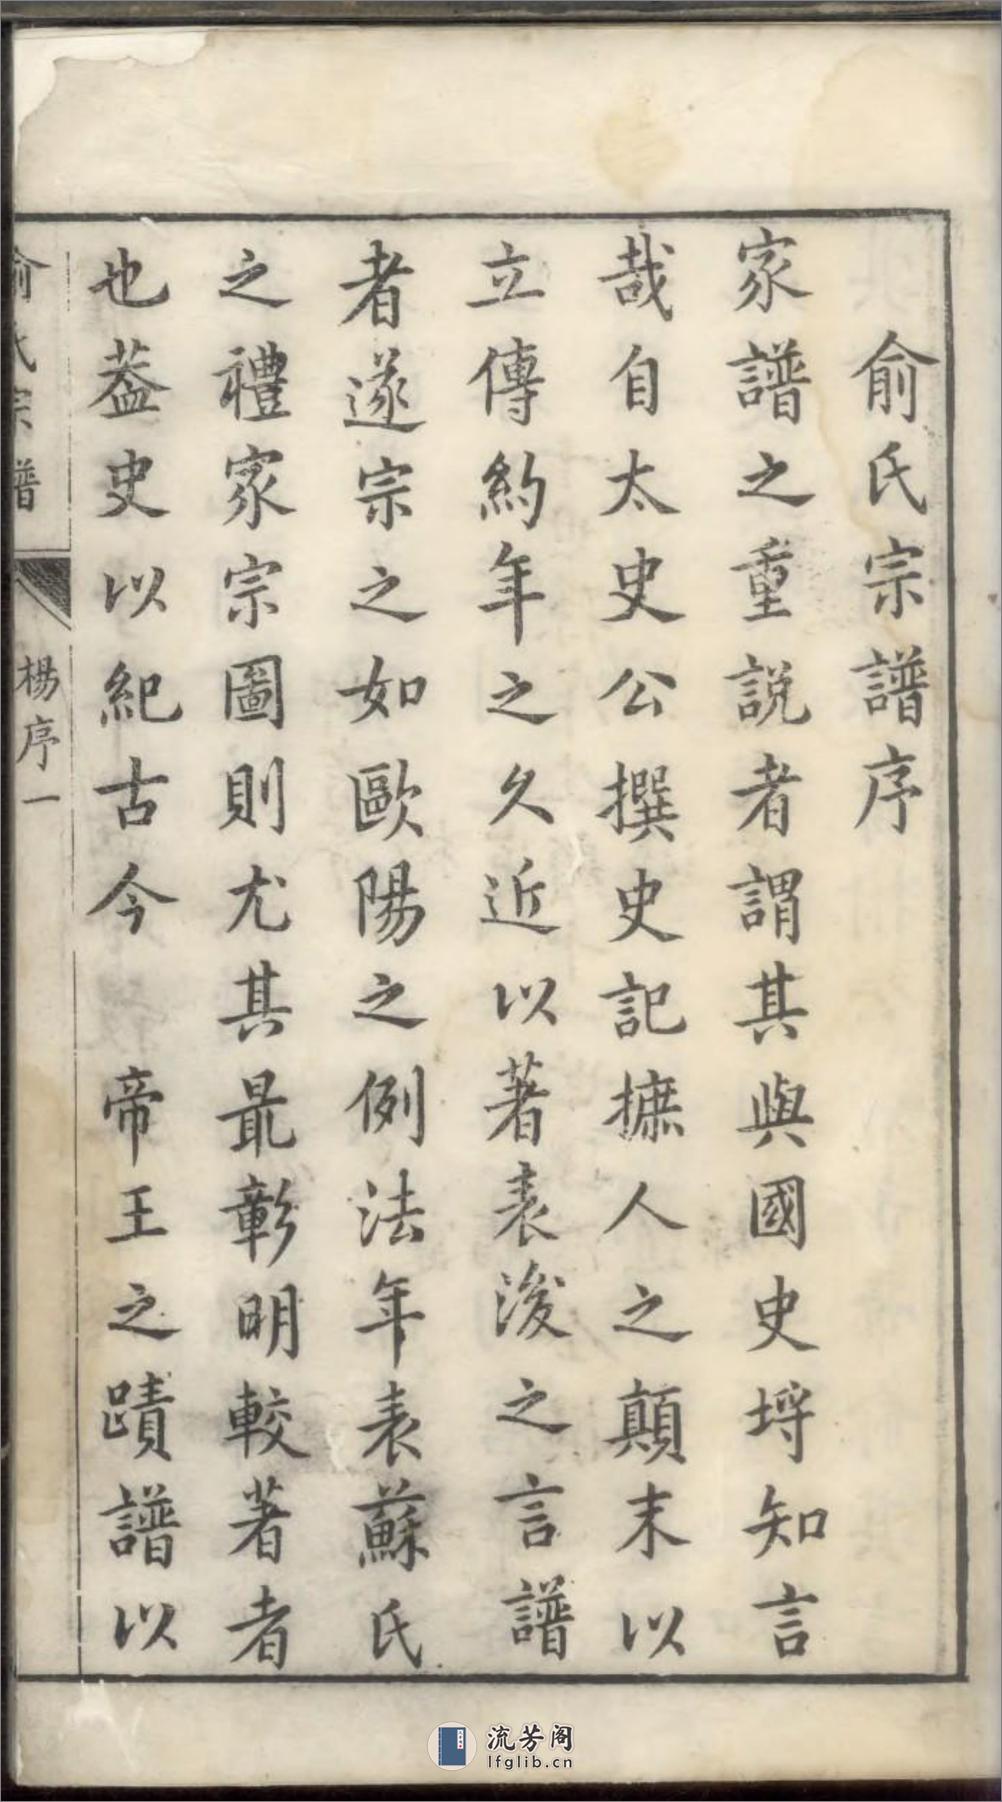 俞氏宗譜序
家譜之重說者謂其與國史埒知言
哉自太史公撰史記摭人之顛末以
立傳約年之久近以著表後之言譜
者遂宗之如歐陽之例法年表蘇氏
之禮家宗圖則尤其最彰明較著者
也蓋史以紀古今 帝王之蹟譜以
俞氏宗譜
楊序一
流芳阁
lfglib.cn